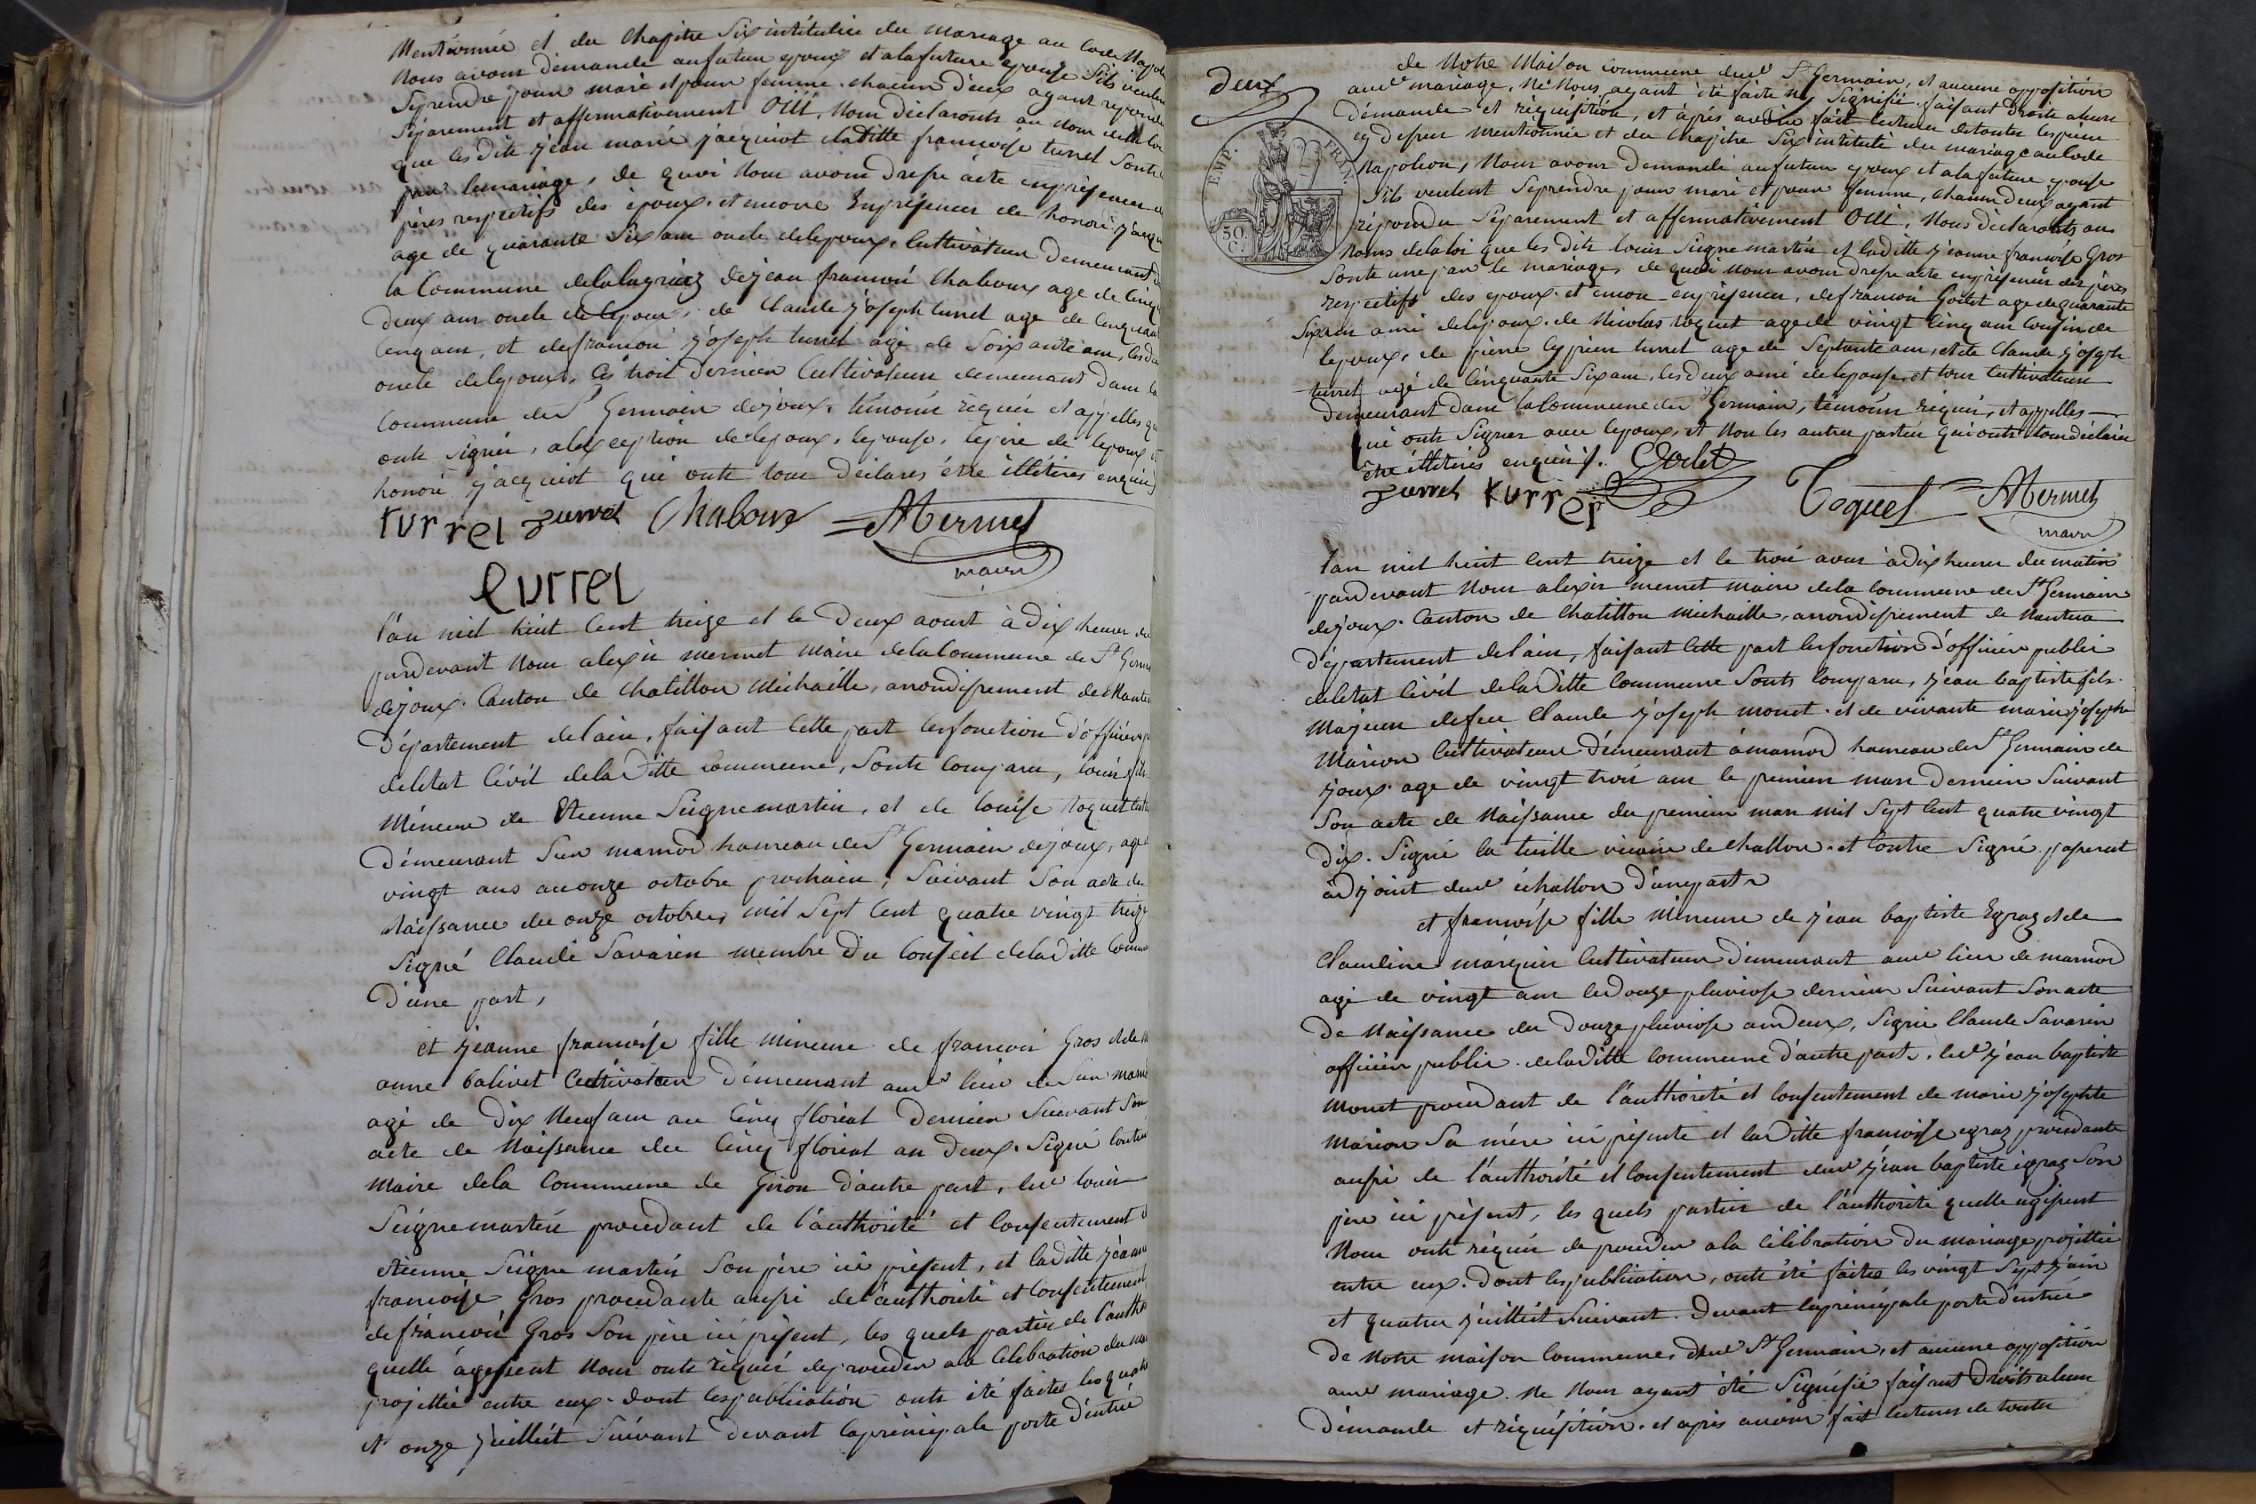 Mentionnée et du chapitre Six intitulée du mariage au Code Napole
Nous avons demande aufuteur epoux et alafuture epouse Sils veulen
Seprendre pour mari et pour femme. chacun d'eux ayant repondu
Séparement et affermativement Oüi, Nous déclaronts au Nom de la loi
que lesdits jean marie jacquiot etladitte francoise turrel Sont
par lemariage, de quoi Nous avons drepé acte enprésence d
pères respectifs des époux. et encore Enprésence de honoré jacqu
age de quarante Six ans oncle delepoux, Cultivateur demeurant
la Commune delalleyriaz dejean francoi Chaboux age de Cinq
deux ans oncle de lepoux, de Claude joseph turrel age de Cinquan
Cinq ans, et defrancoi joseph turrel age de Soixante ans, les d
oncle delepoux, Ces trois dernier Cultivateur demeurant dans la
Commune de St Germain dejoux. témoins requis et appelles qu
onts Signés, alexception delepoux, lepouse, lepère de lepoux
honoré jacquiot qui onts tous déclarés être illitérés enquis
turrel turrel Chaboux Mermet
maire
turrel
l'an mil huit Cent treize et le deux aoust à dix heures du
pardevant Nous alexis mermet Maire delaCommune de St Germ
dejoux. Canton de Chatillon Michaille, arrondissement de Nantu
Département delain, faisant Cette part lesfonction d'officier
deletat Civil deladitte commune, Sonts Comparu, louis fils
Mineur de Etienne Seignemartin, et de louise toquet Culti
demeurant Sur marnod hameau de St Germain dejoux, age
vingt ans auonze octobre prochain, Suivant Son acte de
Naissance du onze octobre, mil Sept Cent quatre vingt treize
Signé Claude Savarin membre du Conseil deladitte Comm
d'une part,
et jeanne francoise fille Mineure de francoi Gros et de
anne balivet Cultivateur demeurant audt lieu de Sur marn
agé de dix Neuf ans au Cinq floréal dernier Suivant Son
acte de Naissance du Cinq floréal an deux. Signé
Maire dela Commune de Giron d'autre part, ledt louis
Seignemartin procedant de l'authorité et Consentement d
etienne Seigne martin Son père ici présent, et laditte jeanne
francoise Gros procedante aussi de l'authorité et Consentement
defrancoi Gros Son père ici présent, les quels parties de l'autho
quelle agissent Nous onts réquis deproceder ala Célébration du ma
projettée entre eux. dont lespublication onts été faites les quatre
et onze juillet Suivant devant laprincipale porte d'entrée
deux
EMP. FRAN.
50 C.
de Notre Maison commune dudt St Germain, et aucune opposition
audt mariage, Ne Nous ayant été faite ny Signifié faisant droits aleur
démande et réquisition, et après avoir fait lecture detoutes lespièces
cy dessus mentionnée et du chapitre Six intitulé du mariage aucode
Napoléon, Nous avons demandé aufuteur epoux et alafuture epouse
Sils veulent Seprendre pour mari et pour femme, chacun deux ayant
répondu Séparement et affermativement Oüi, Nous déclaronts au
Noms de la loi que les dits louis Seigne martin et laditte jeanne francoise Gros
Sonts unis par le mariage, de quoi Nous avons drepé acte enprésence des pères
respectifs des epoux. et encore enprésence, defrancoi Godet age de quarante
Sixans ami delepoux. de Nicolas toquet age de vingt Cinq ans Cousin de
lepoux, de pierre cyprien turrel age de Septante ans, et de Claude joseph
turrel agé de Cinquante Sixans, les deux ami delepouse, et tous Cultivateur
demeurant dans laCommune de St Germain, témoins requis, et appelles
qui onts Signés avec lepoux, et Non les autres parties qui onts tous déclarés
être illitérés enquis. Godet
turrel turrel Toquet Mermet
maire
l'an mil huit Cent treize et le trois aous à dix heures du matin
pardevant Nous alexis mermet maire dela Commune de St Germain
dejoux. Canton de Chatillon Michaille, arrondissement de Nantua
Département delain, faisant Cette part lesfonction d'officier public
deletat Civil deladitte Commune Sonts Comparu, jean baptiste fils
Majeur defeu Claude joseph monet. et de vivante marie josephte
Marion Cultivateur demeurant à marnod hameau de St Germain de
joux. age de vingt trois ans le premier mars dernier Suivant
Son acte de Naissance du premier mars mil Sept Cent quatre vingt
dix. Signé la tuille vicaire dechallon. et Contre Signé paperat
adjoint dudt échallon d'unepart
et francoise fille Mineure de jean baptiste Egraz et de
Claudine marquis Cultivateur demeurant audt lieu de marnod
agé de vingt ans ledouze pluviose dernier Suivant Son acte
de Naissance du douze pluviose andeux, Signé Claude Savarin
officier public. deladitte commune d'autre part. ledt jean baptiste
Monet procedant de l'authorité et Consentement de marie josephte
Marion Sa mère ici présente et laditte francoise egraz procedante
aussi de l'authorité et Consentement dudt jean baptiste egraz Son
père ici présent, les quels parties de l'authorité quelle agissent
Nous onts réquis de proceder ala Célébration du mariage projettée
entre eux. dont lespublication, onts été faites les vingt Sept juin
et quatre juillet Suivant. devant laprincipale porte d'entrée
de Notre maison Commune, dudt St Germain, et aucune opposition
audt mariage. Ne Nous ayant été Signifié faisant Droits aleur
démande et réquisition. et après avoir fait lecture de toutes